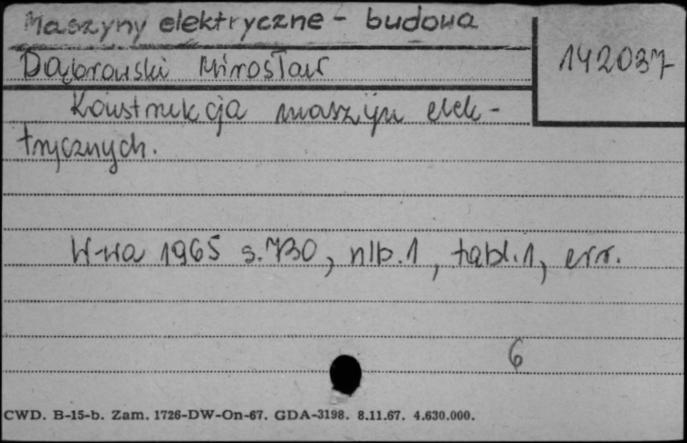 Maszyny elektryczne - budowa
142037
Dąbrowski Mirosław
Konstrukcja maszyn elek-
trycznych.
W-wa 1965 s.730, nlb.1, tabl.1, err.
6
CWD. B-15-b. Zam. 1726-DW-On-67. GDA-3198. 8.11.67. 4.630.000.